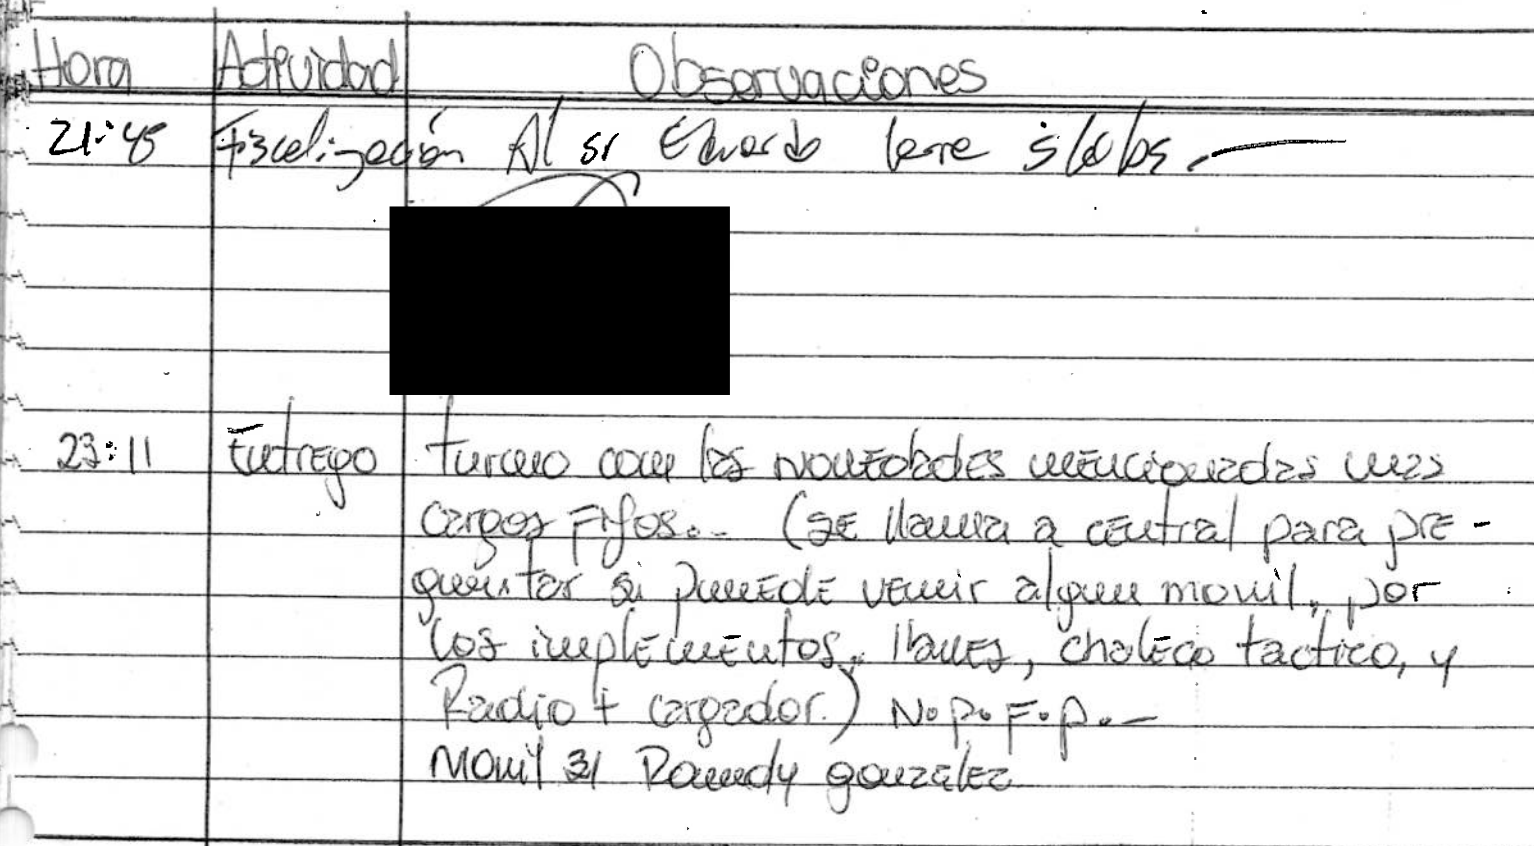 Hora Actividad Observaciones
21:45 Fiscalización Al sr Eduardo
23:11 Entrego turno con las novedades mencionadas mas
cargos Fijos.- (SE llama a central para pre-
guntar si puede venir algun movil, por
los implementos, llaves, chaleco tactico, y
Radio + cargador.) N.P.F.P.-
Movil 31 Randy gonzalez